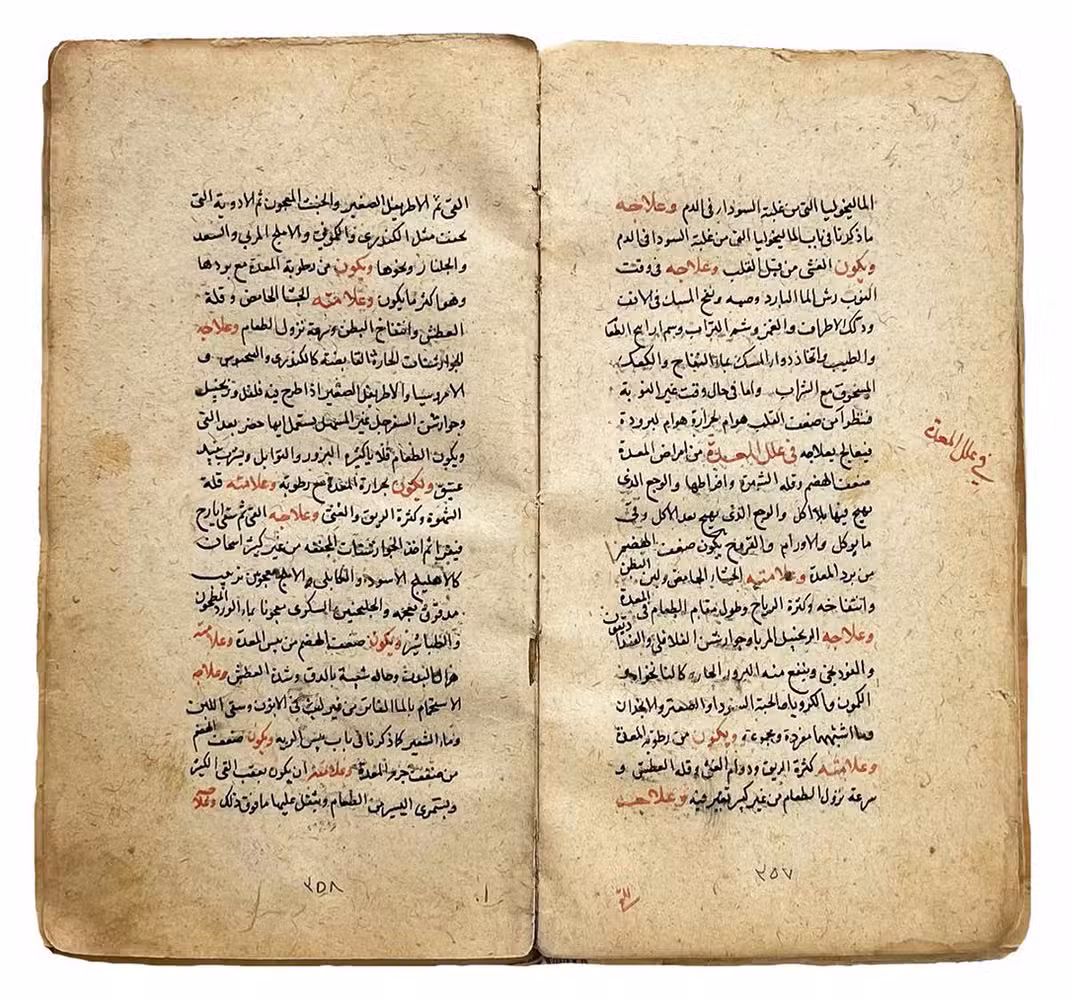 الماليخوليا التى من غلبة السودا فى الدم وعلاجه
ما ذكرنا فى باب الماليخوليا التى من غلبة السودا فى الدم
ويكون الغشى من قبل القلب وعلاجه فى وقت
النوب رش الما البارد وصبه ونفخ المسك فى الانف
ودلك الاطراف والغمز وشم التراب وشم اراييح الطعا
والطيب واتخاذ دوا المسك بما التفاح والكعك
المسحوق مع الشراب واما فى حال وقت غير النوبة
فننظر أمن ضعف القلب هو ام لحرارة هو ام لبرودة
فيعالج بعلاجه فى علل المعدة من امراض المعدة
ضعف الهضم وقلة الشهوة وافراطها والوجع الذى
يهيج فيها بلا اكل والوجع الذى يهيج بعد الاكل وقى
ما يوكل والاورام والقروح يكون ضعف الهضم
من برد المعدة وعلامته الجشا الحامض ولين البطن
وانتفاخه وكثرة الرياح وطول مقام الطعام فى المعدة
وعلاجه الزنجبيل المربا وجوارشن الفلافلى والفندا ديقون
والفودنجى وينفع منه البزور الحارة كالنانخواه
الكمون والكرويا والحبة السودا والصعتر والانجدان
وما اشبهها مفردة ومجموعة ويكون من رطوبة المعدة
وعلامته كثرة الريق ودوام الغشى وقلة العطش و
سرعة نزول الطعام من غير كبير تغير فيه وعلاجه
فى علل المعدة
٢٥٧
القى
القى ثم الاطريفل الصغير والخبث المعجون ثم الادوية التى
تجفف مثل الكندرى والكمونى والاملج المربى والسعد
والجلنار ونحوها ويكون من رطوبة المعدة مع بردها
وهو اكثر ما يكون وعلامته الجشا الحامض وقلة
العطش وانتفاخ البطن وسرعة نزول الطعام وعلاجه
الجوارشنات الحارة القابضة كالكندرى و
الامروسيا والاطريفل الصغير اذا طرح فيه فلفل وزنجبيل
وجوارشن السفرجل غير المسهل يستعمل ايها حضر بعد القى
ويكون الطعام قلايا كثيرة البزور والتوابل ويشرب نبيذ
عتيق ويكون لحرارة المعدة مع رطوبة وعلامته قلة
الشهوة وكثرة الريق والغثى وعلاجه القى ثم سقى ايارج
فيقرا ثم اخذ الجوارشنات المجففة من غير كبير اسخان
كالاهليلج الاسود والكابلى والاملج معجون بزبيب
مدقوق بعجمه والجلنجبين السكرى معجونا بماء الورد المطحون
والطباشير ويكون ضعف الهضم من يبس المعدة وعلامته
هزال البدن وحاله شبيهة بالدق وشدة العطش وعلاجه
الاستحمام بالما الفاتر من غير لبث فى الابزن وسقى اللبن
وماء الشعير كما ذكرنا فى باب يبس المرى ويكون ضعف الهضم
من ضعف جرم المعدة وعلامته ان يكون بعقب القى الكثير
ويستمرى اليسير من الطعام ويثقل عليها ما فوق ذلك وعلاجه
٢٥٨